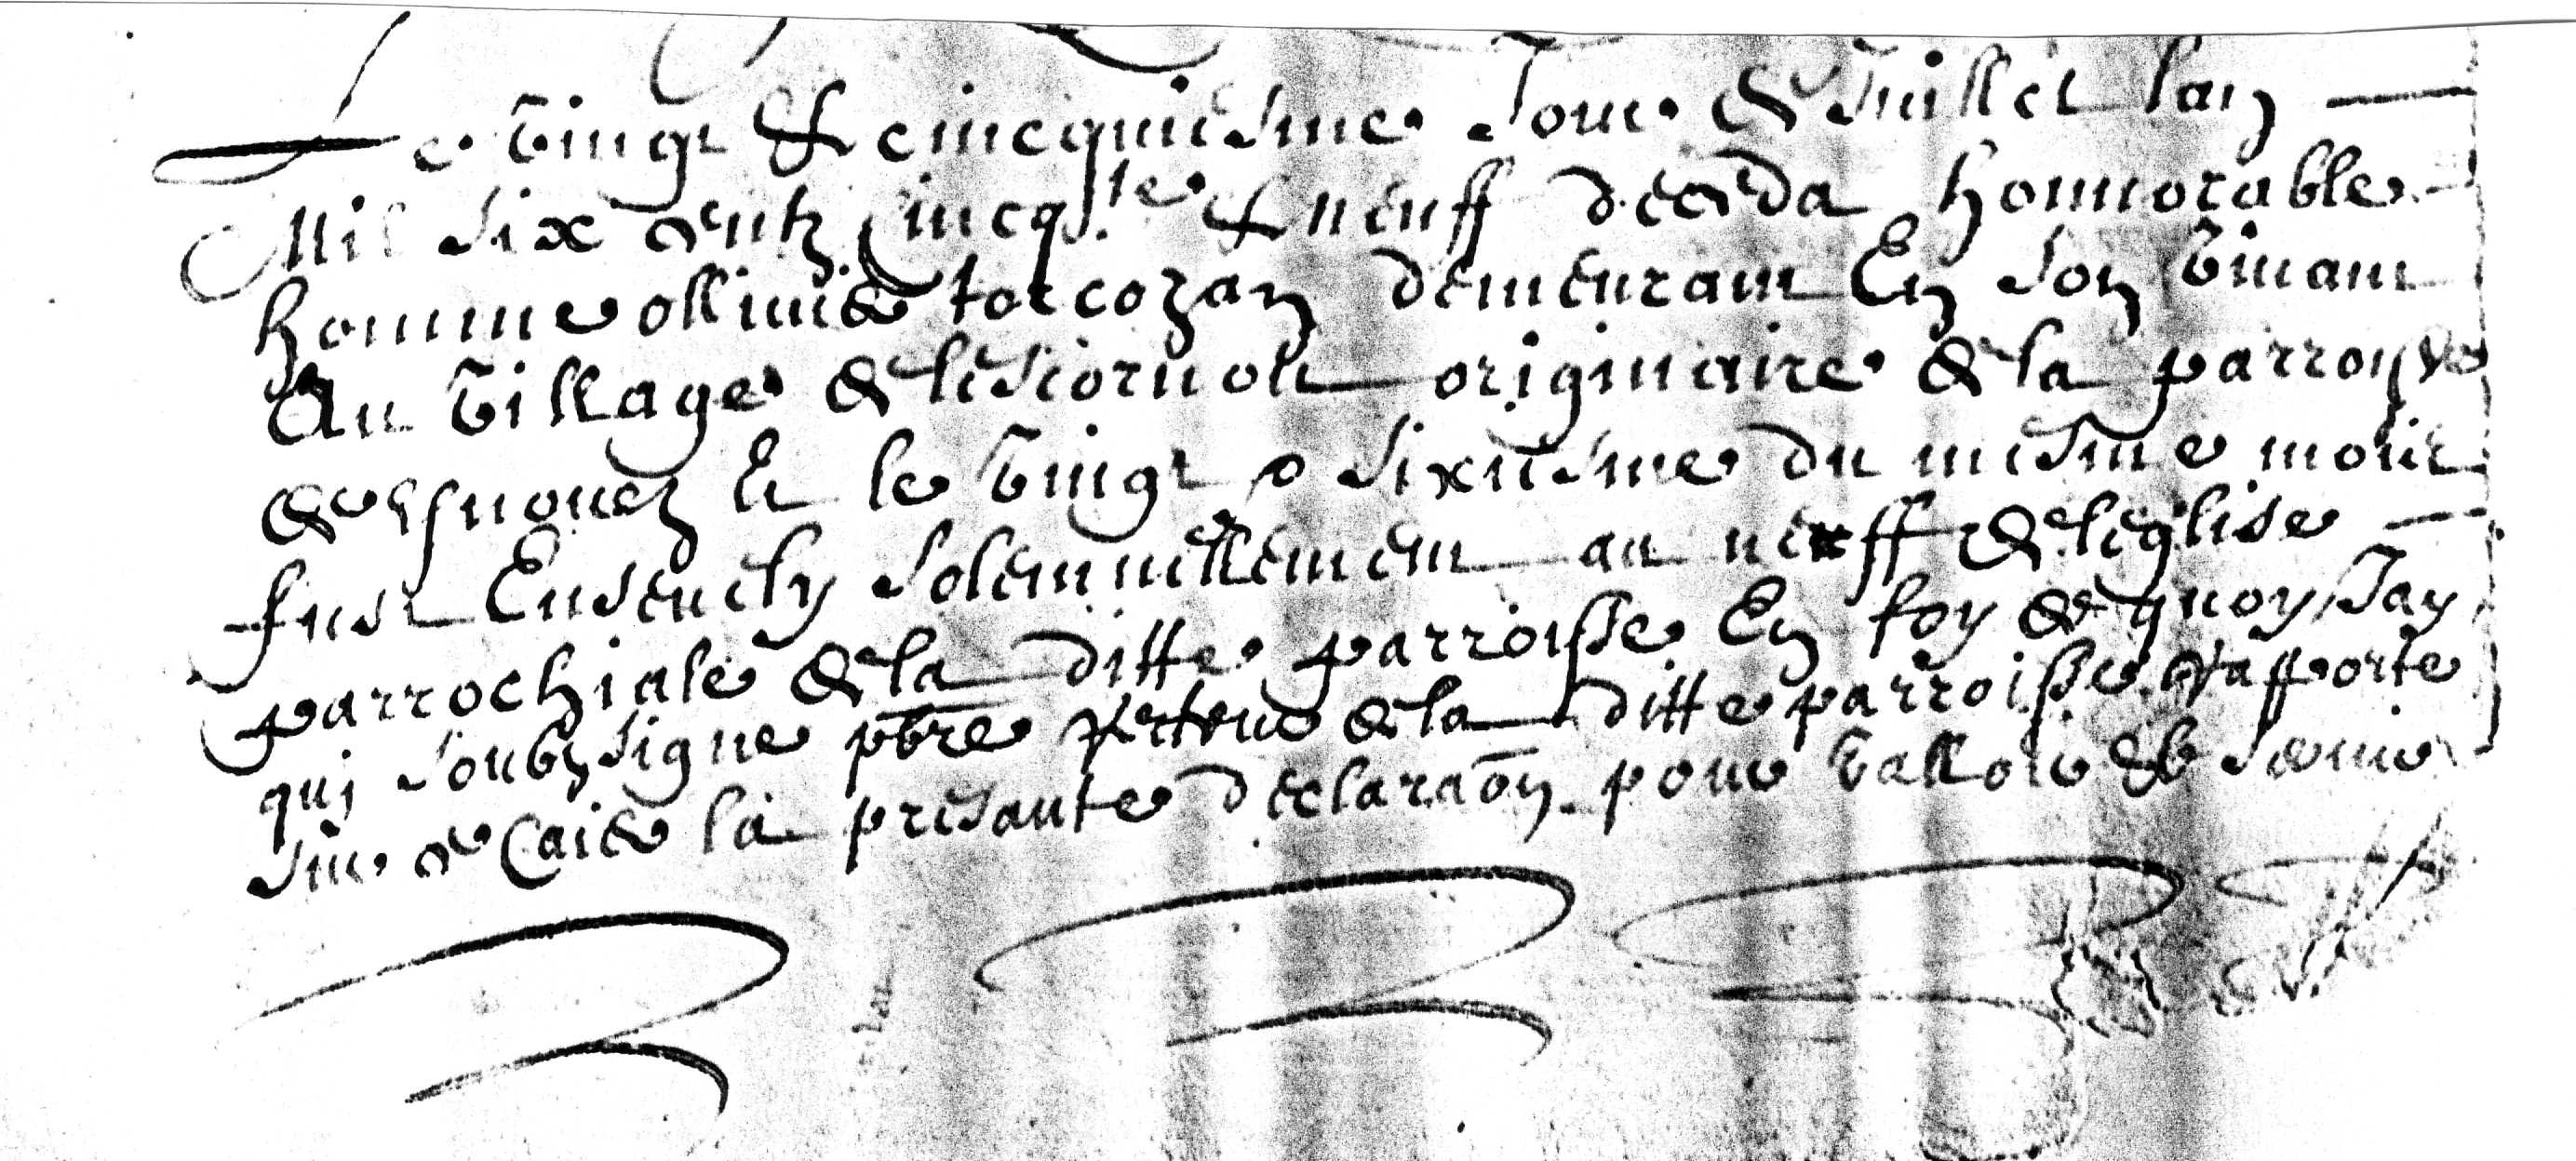 Le vingt & cincquiesme Jour de Juillet lan
Mil six centz cincqte & neuff deceda honnorable
homme ollivier torcozan demeurant En son vivant
Au village de lesiornou originaire de la parroysse
de Et le vingt & sixiesme du mesme moix
fust Ensevely solemnellement au neff de leglise
parrochiale de la ditte parroisse En foy de quoy Jay
qui soubzsigne pbre recteur de la ditte parroisse rapporte
sur ce Caier la presante declaraon pour valloir & servir